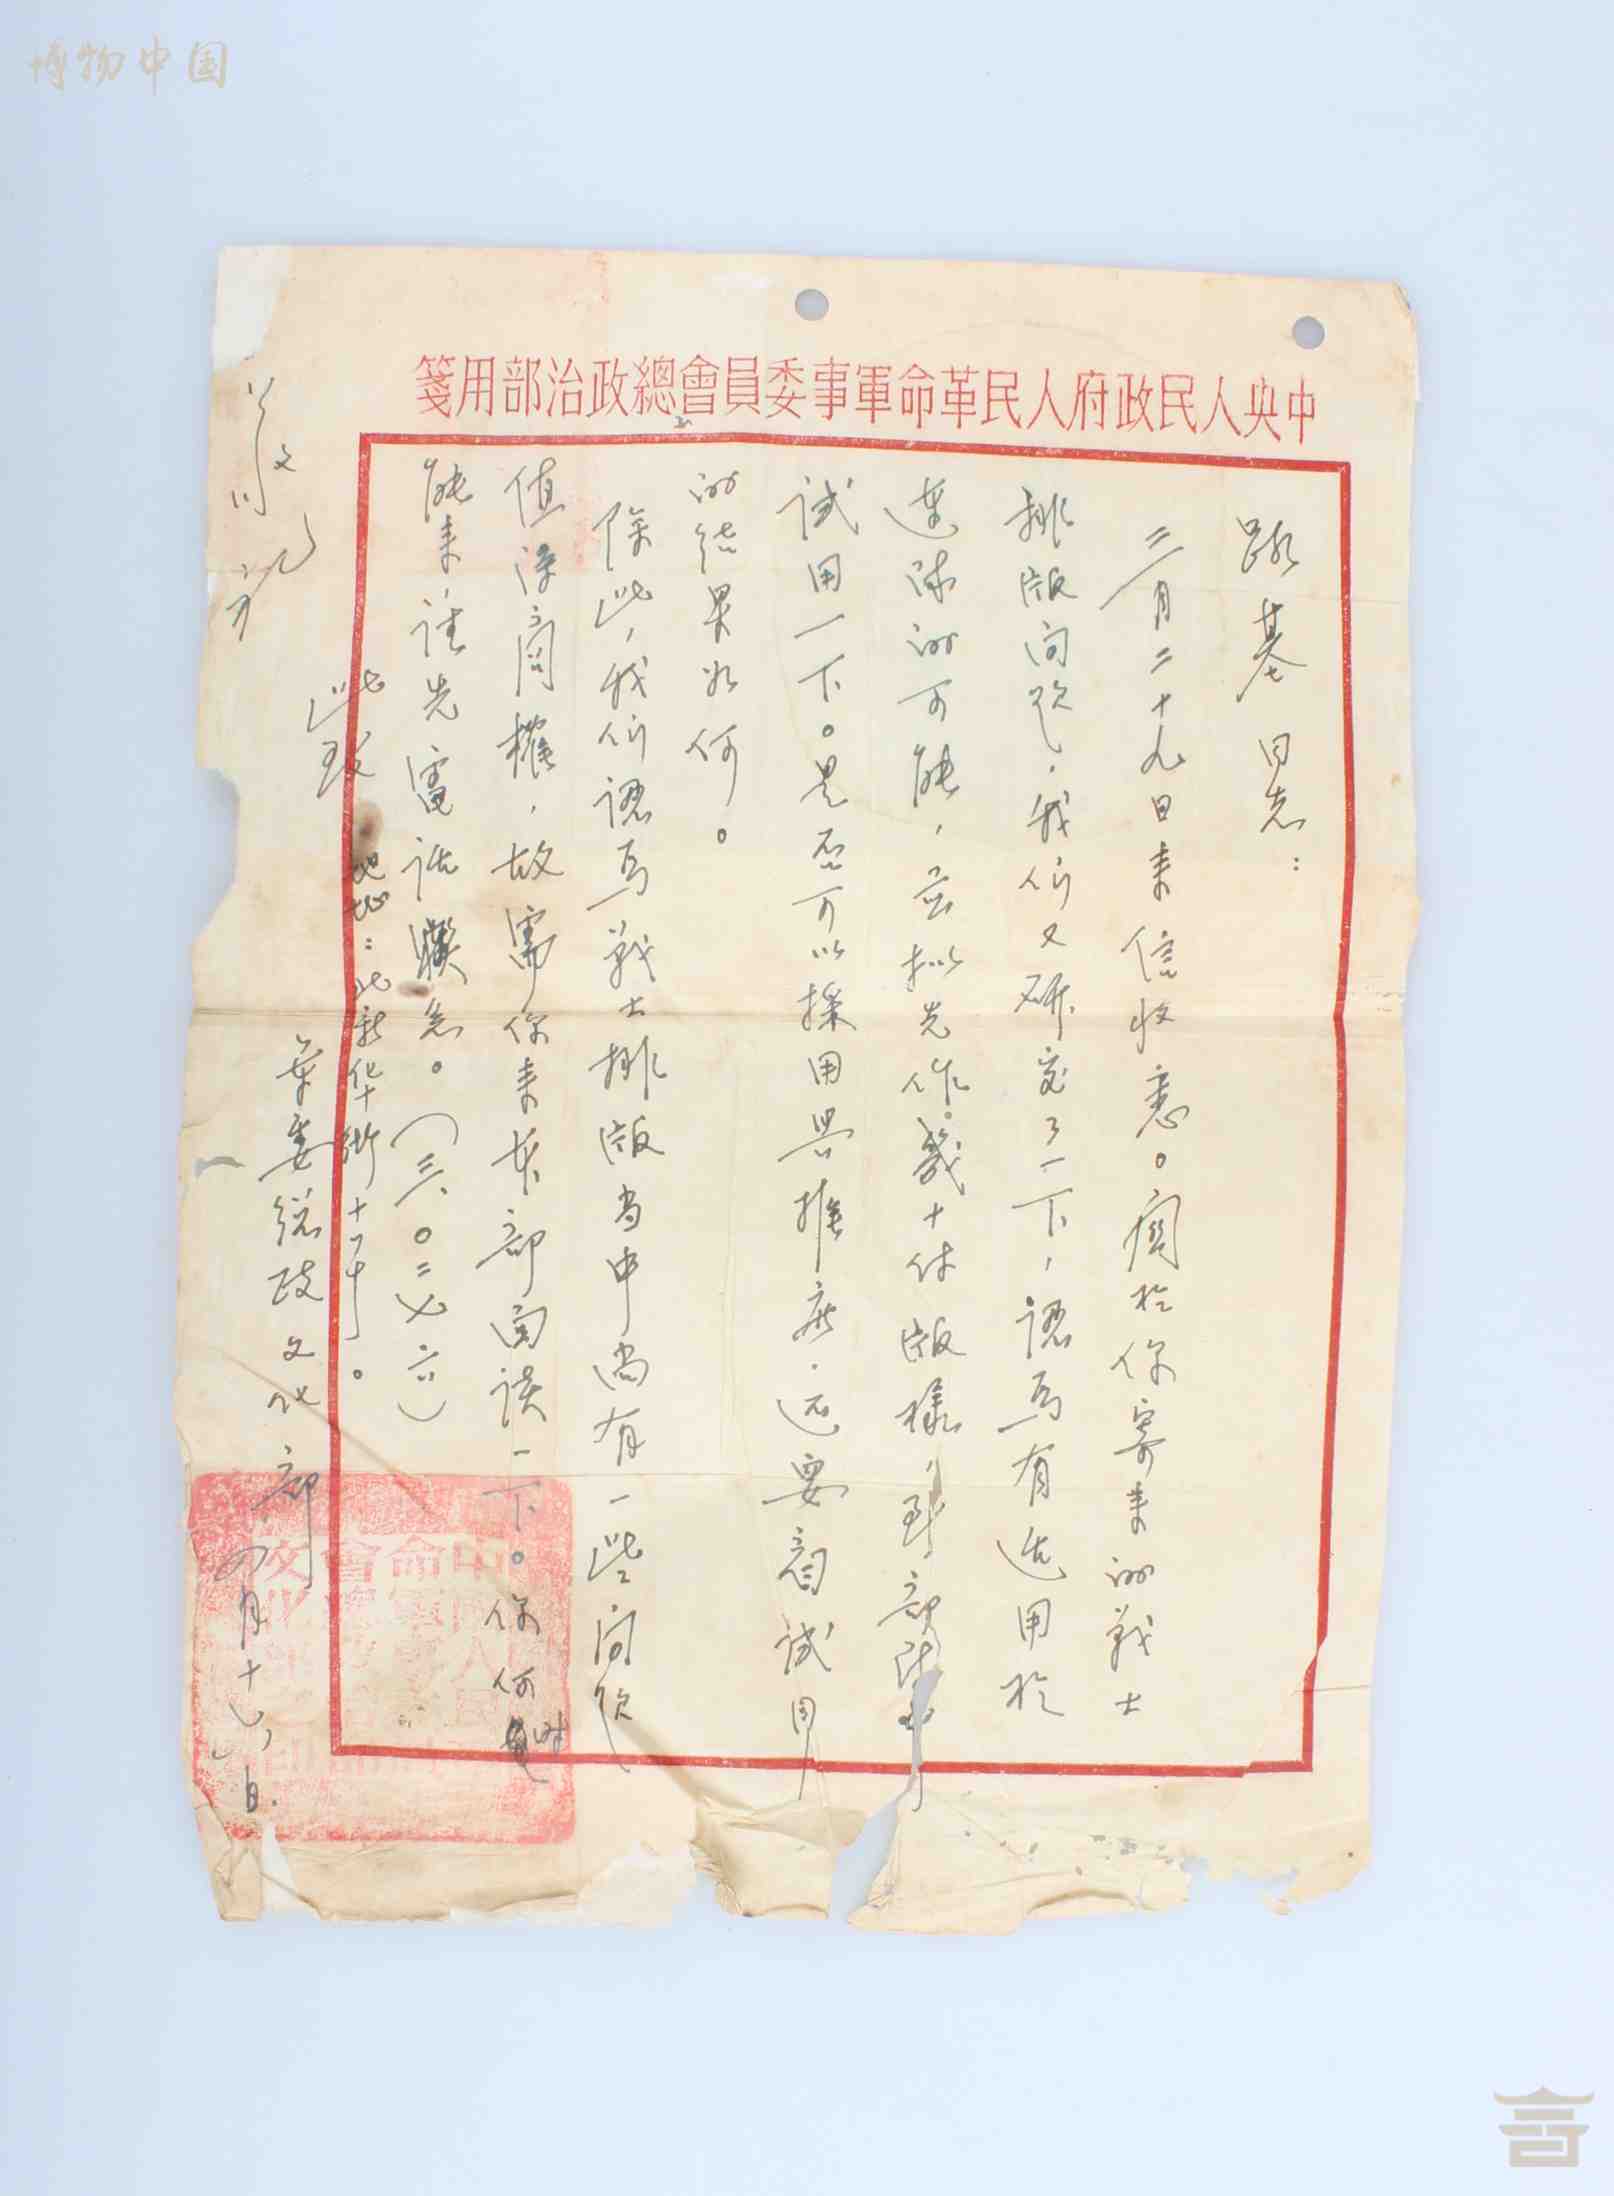 博物中国
中央人民政府人民革命軍事委員會總政治部用箋
基同志：
三月二十九日来信收悉。関於你寄来的战士
排版问题，我们又研究了一下，認為有适用於
連隊的可能，並拟先作幾十付版樣，到部隊中
試用一下。是否可以採用與推廣，还要看試用
的結果如何。
除此，我们認為战士排版当中尚有一些问题
值得商榷，故需你来本部面谈一下。你何时
能来請先電話聯系。（三〇二七六）
地址：北新华街十六号。
此致
敬礼
军委総政文化部
四月十六日